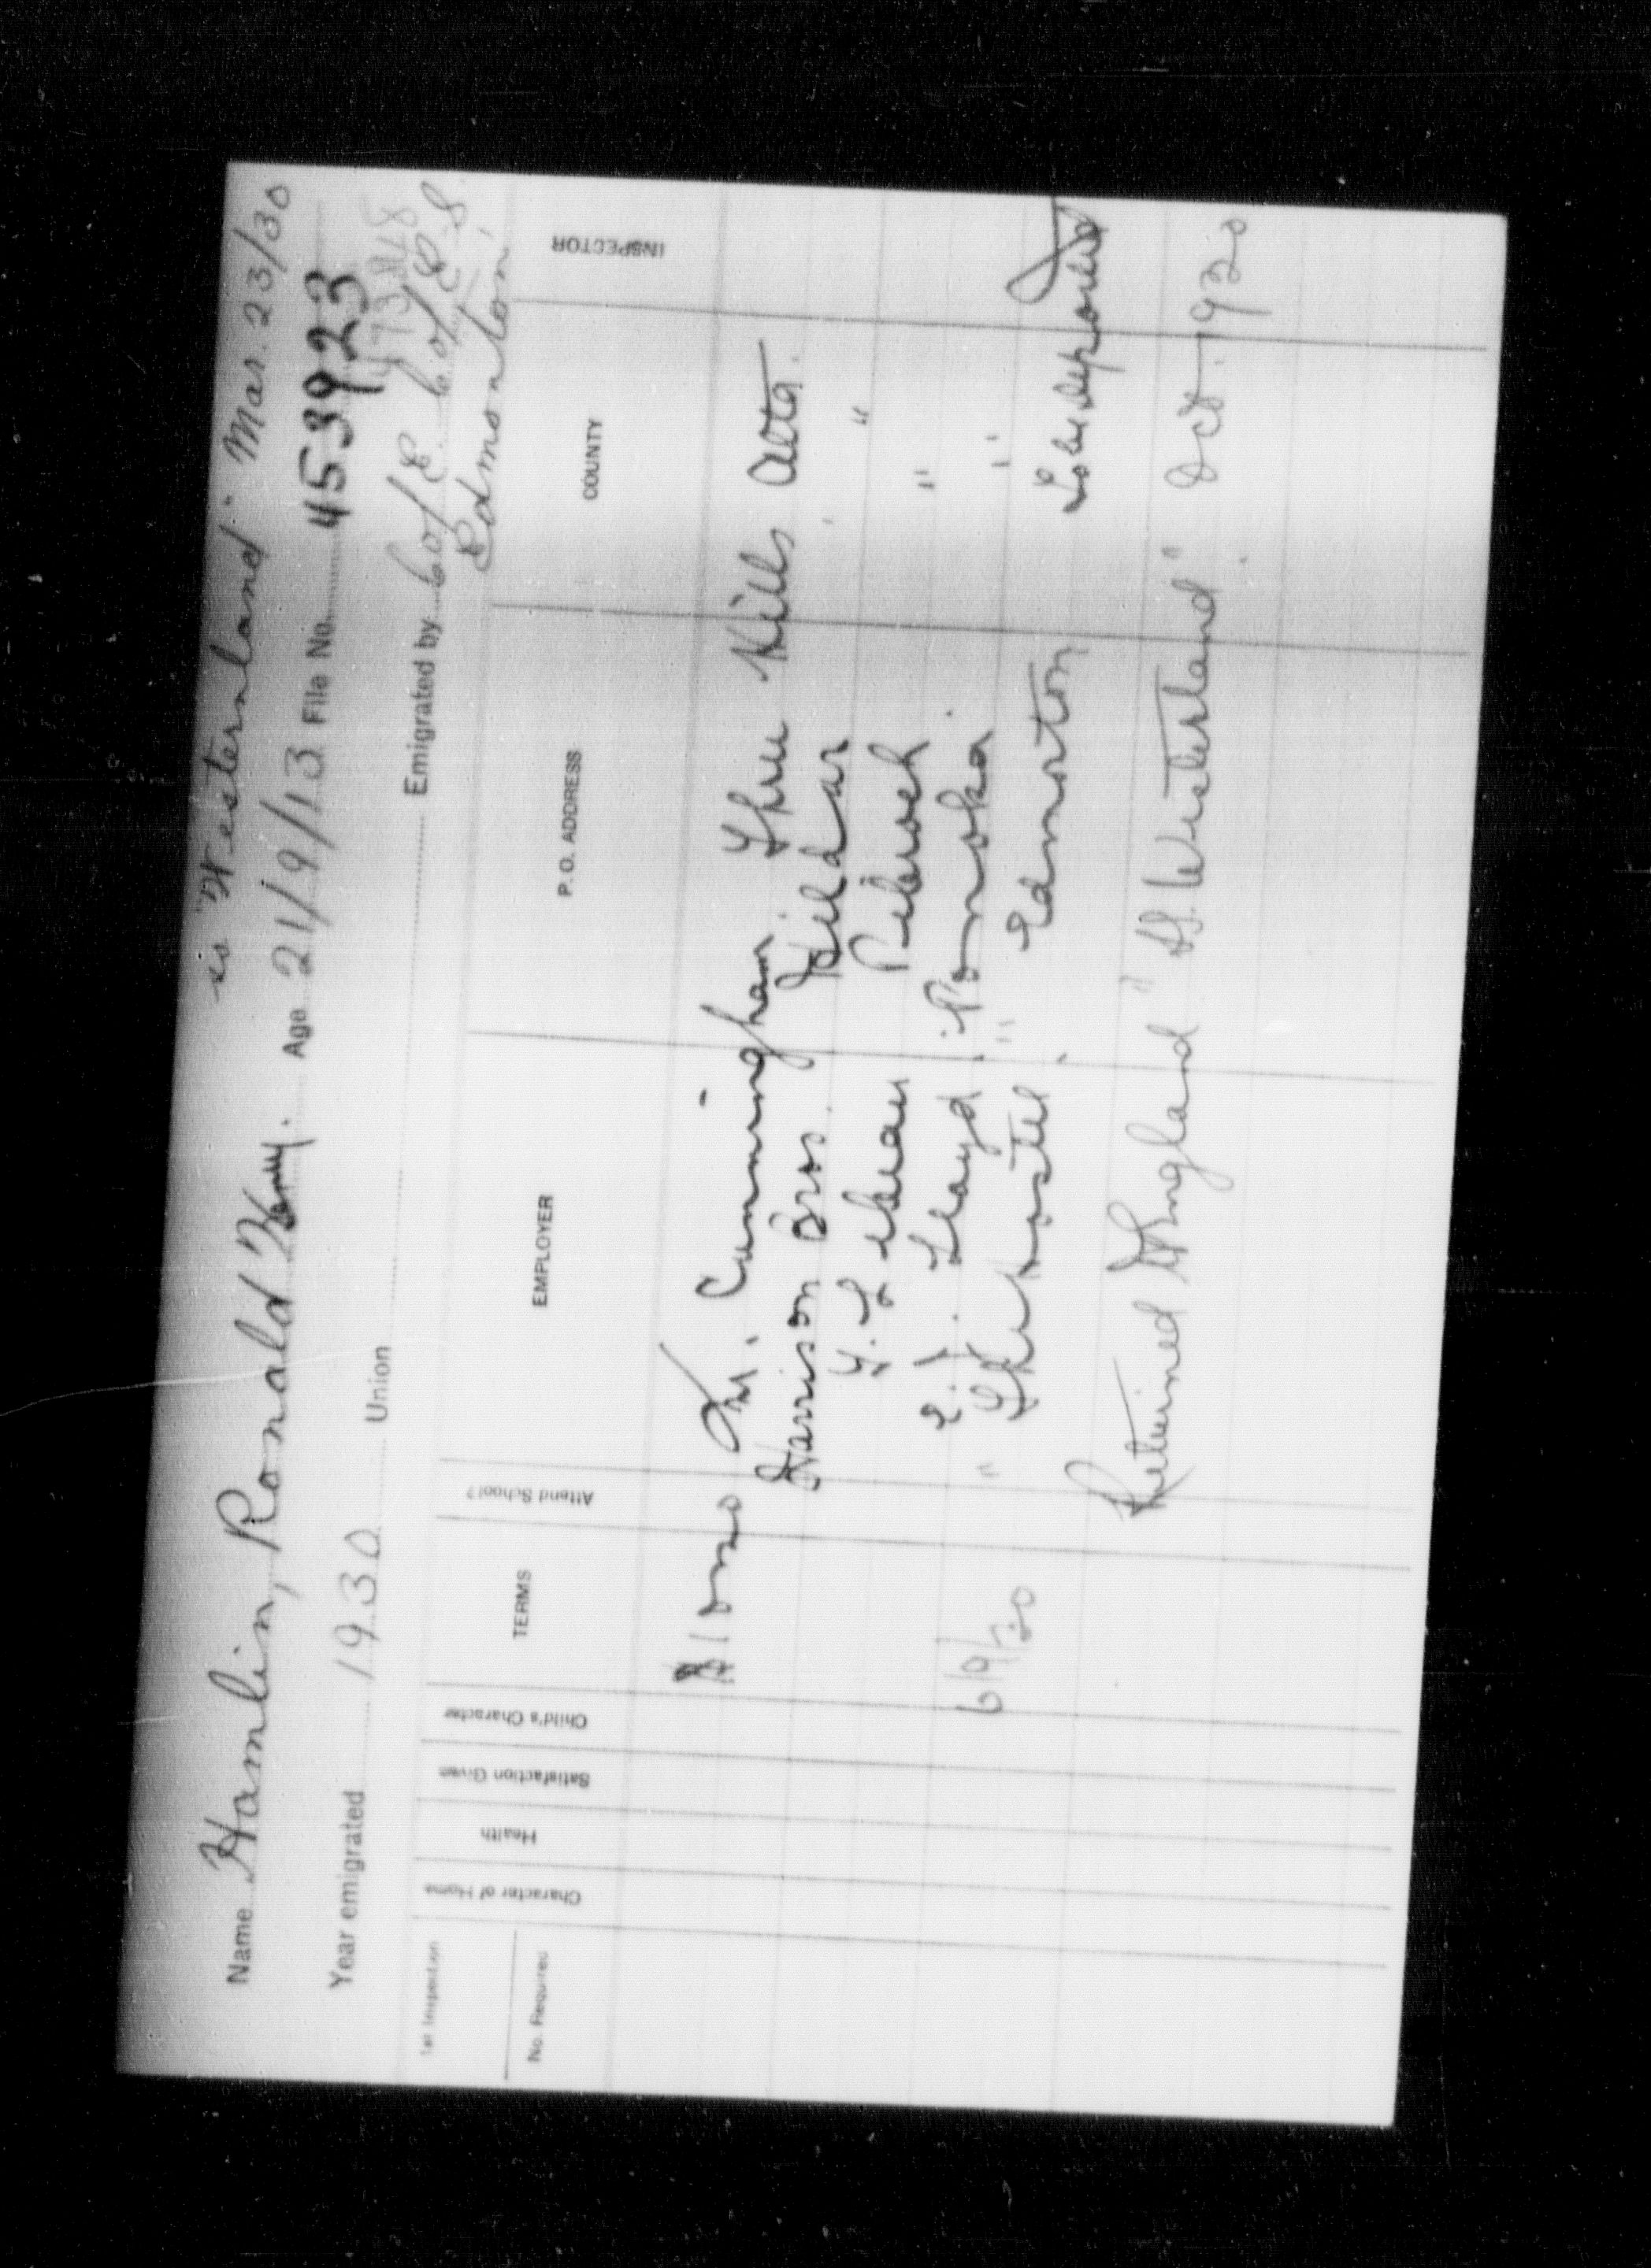 ss "Westernland" Mar. 23/30
Name Hamlin, Ronald Henry. Age 21/9/13 File No. 453923
Year emigrated 1930 Union Emigrated by C of E. C of E S.
Edmonton
1st Inspection
No. Required
Character of Home
Health
Satisfaction Given
Child's Character
TERMS
Attend School?
EMPLOYER
P. O. ADDRESS
COUNTY
INSPECTOR
M. Cunningham Three Hills Alta.
Harrison Bros. "
Pibroch "
E. J. Lloyd Ponoka "
6/9/30 " The Hostel Edmonton
To be deported
Returned to England " SS. Westernland " Oct. 1930